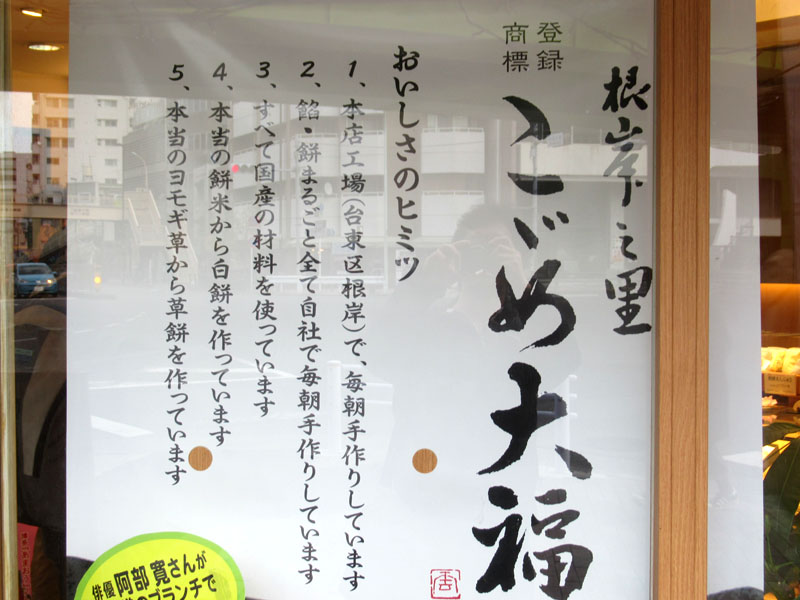 根岸之里
登録
商標
こゞめ大福
おいしさのヒミツ
1、本店工場(台東区根岸)で、毎朝手作りしています
2、餡・餅まるごと全て自社で毎朝手作りしています
3、すべて国産の材料を使っています
4、本当の餅米から白餅を作っています
5、本当のヨモギ草から草餅を作っています
俳優 阿部 寛さんが
のブランチで